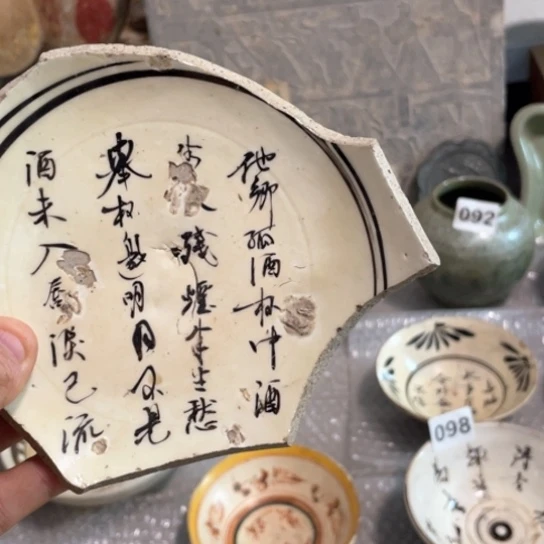 他鄉孤酒杯中酒
殘燈半生愁
舉杯邀明月不是
酒未入唇淚已流
092
098